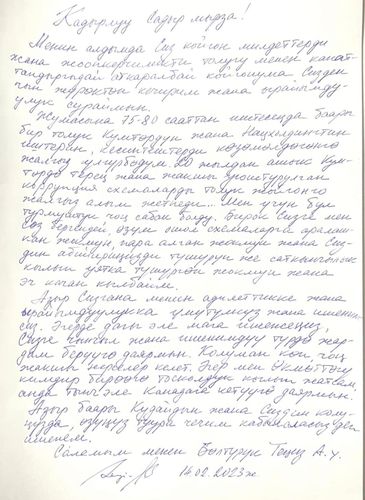 Кадырлуу Садыр мырза!
Менин алдымда Сиз койгон милдеттерди
жана жоопкерчиликти толугу менен канат-
тандырылдай аткаралбай койгонума Сизден
чын жүрөктөн кечирим жана ырайымду-
улук сураймын.
Жумасына 75-80 сааттап иштесемда баары
бир толук Кумтөрдүн жана Нацхолдингтин
иштерин, кесипитердин көзөмөлдөгөнгө
жалгыз үлгүрбөдүм. 20 жылдан ашык Кум-
төрдө терең жана жакшы уюштурулган
коррупция схемаларды толук жойгонго
жалгыз алым жетпеди... Мен үчүн бул
турмуштук чоң сабак болду. Бирок Сизге мен
сөз бергендей, өзүм ошол схемаларга аралаш-
кан жокмун, пара алган жокмун жана Сиз-
дин абийириңизди түшүрүп же саткынчылык
кылып уятка түшүргөн жокмун жана
эч качан кылбайм.
Азыр Сизгана менин адилеттикке жана
ырайымдуулукка үмүтүмсүз жана ишеними-
сиз. Эгерде дагы эле мага ишенсеңиз,
Сизге чынчыл жана ишенимдүү түрдө жар-
дам берүүгө даярмын. Колуман көп чоң
жакшы нерселер келет. Эгер мен Өкмөттөгү
кимдир бирөөгө тоскоолдук кылып жатсам,
анда тынч эле Канадага кетүүгө даярмын.
Азыр баары Кудайдын жана Сиздин колу-
ңузда, өзүңүз туура чечим кабыл аласыз деп
ишенем.
Саламым менен Бөлтүрүк Теңиз А.у.
14.02.2023ж